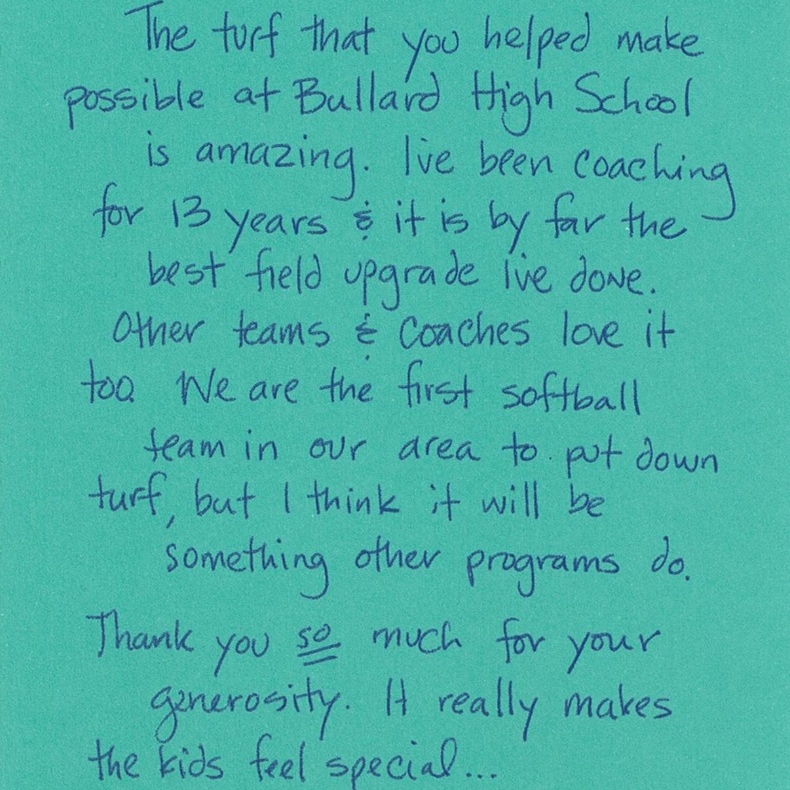 The turf that you helped make
possible at Bullard High School
is amazing. I've been coaching
for 13 years & it is by far the
best field upgrade I've done.
Other teams & coaches love it
too. We are the first softball
team in our area to put down
turf, but I think it will be
something other programs do.
Thank you so much for your
generosity. It really makes
the kids feel special...